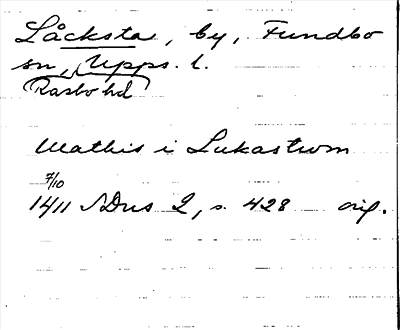 Låcksta, by, Fundbo
sn, Upps. l.
Rasbo hd
Mathis i Lukastwm
7/10
1411 SDns 2, s. 428 orig.